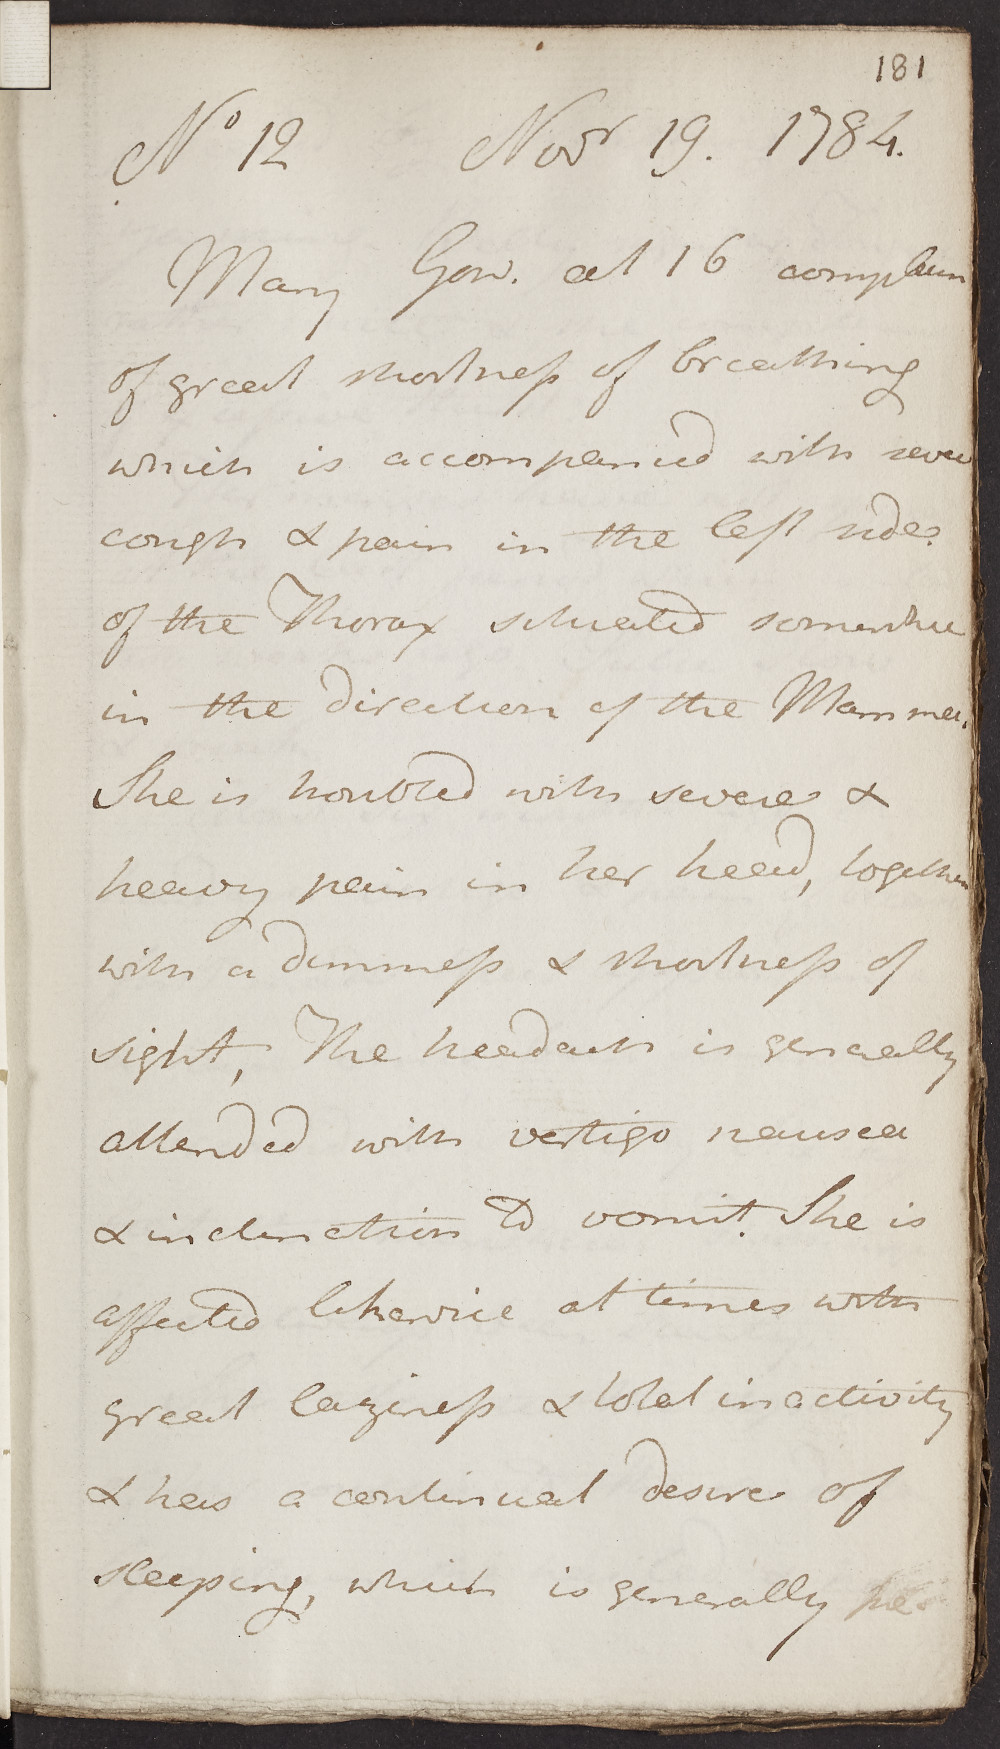 181
No 12 Novr 19. 1784.
Mary Gow. æt 16 complains
of great shortness of breathing
which is accompanied with severe
cough & pain in the left side.
of the Thorax situated somewhere
in the direction of the Mammæ.
She is troubled with severe &
heavy pain in her head, together
with a dimness & shortness of
sight, The headach is generally
attended with vertigo nausea
& inclination to vomit. She is
affected likewise at times with
great laziness & total inactivity
& has a continual desire of
sleeping, which is generally pre-